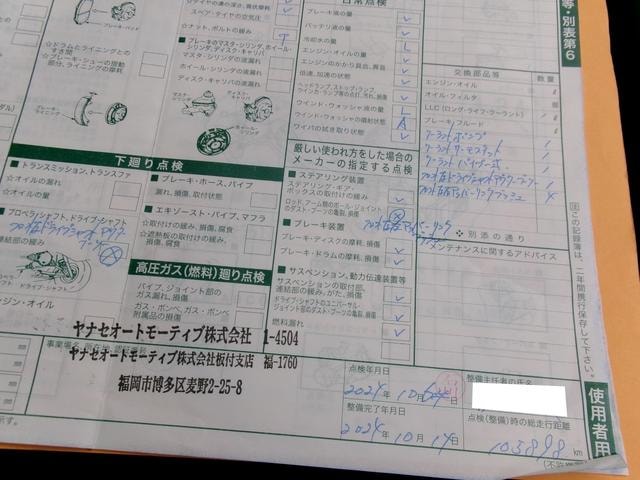 等・別表第6
日常点検
ブレーキ液の量
バッテリ液の量
冷却水の量
エンジン・オイルの量
エンジンのかかり具合、異音
低速、加速の状態
ウインド・ウォッシャ液の量
ウインド・ウォッシャ液の噴射状態
ワイパの拭き取り状態
☆ナット、ボルトの緩み
ブレーキのマスタ・シリンダ、ホイール・シリンダ、ディスク・キャリパ
マスタ・シリンダの液漏れ
ホイール・シリンダの液漏れ
ディスク・キャリパの液漏れ
マスタ・シリンダ
ディスク・キャリパ
ホイール・シリンダ
☆ドラムとライニングとのすき間
☆ブレーキ・シューの摺動部分、ライニングの摩耗
交換部品等
数量
エンジン・オイル
オイル・フィルタ
LLC(ロング・ライフ・クーラント)
ブレーキ・フルード
クーラントポンプ 1
クーラントサーモスタット 1
クーラントパイプ一式 1
☆別添の通り
メンテナンスに関するアドバイス
厳しい使われ方をした場合のメーカーの指定する点検
ステアリング装置
ステアリング・ギヤ・ボックスの取付けの緩み
ロッド、アーム類のボール・ジョイントのダスト・ブーツの亀裂、損傷
ブレーキ装置
ブレーキ・ディスクの摩耗、損傷
ブレーキ・ドラムの摩耗、損傷
サスペンション、動力伝達装置等
サスペンションの取付部、連結部の緩み、がた、損傷
ドライブ・シャフトのユニバーサル・ジョイント部のダスト・ブーツの亀裂、損傷
燃料漏れ
下廻り点検
トランスミッション、トランスファ
☆オイルの漏れ
☆オイルの量
プロペラ・シャフト、ドライブ・シャフト
連結部の緩み
ドライブ・シャフト
エンジン・オイル
ブレーキ・ホース、パイプ
漏れ、損傷、取付状態
エキゾースト・パイプ、マフラ
☆取付けの緩み、損傷、腐食
☆遮熱板の取付けの緩み、損傷、腐食
高圧ガス(燃料)廻り点検
パイプ、ジョイント部のガス漏れ、損傷
ガス・ボンベ、ガス・ボンベ附属品の損傷
ヤナセオートモーティブ株式会社 1-4504
ヤナセオートモーティブ株式会社板付支店 福-1760
福岡市博多区麦野2-25-8
点検年月日
2024年10月
整備完了年月日
2024年10月14日
整備主任者の氏名
点検(整備)時の総走行距離
105898km
注 この記録簿は、二年間携行保存して下さい。
使用者用